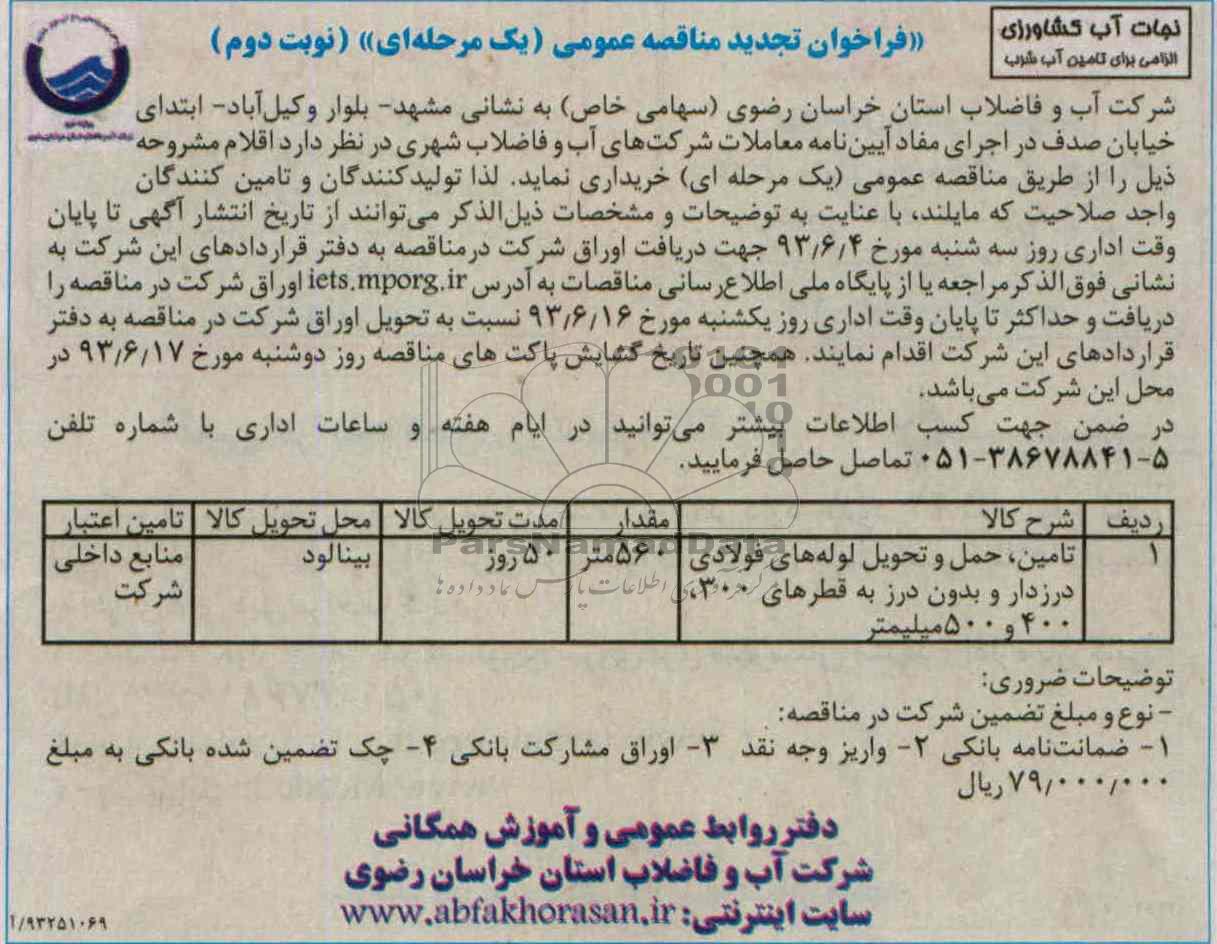 نجات آب کشاورزی
الزامی برای تامین آب شرب
«فراخوان تجدید مناقصه عمومی (یک مرحله‌ای)» (نوبت دوم)
شرکت آب و فاضلاب استان خراسان رضوی (سهامی خاص) به نشانی مشهد- بلوار وکیل‌آباد- ابتدای
خیابان صدف در اجرای مفاد آیین‌نامه معاملات شرکت‌های آب و فاضلاب شهری در نظر دارد اقلام مشروحه
ذیل را از طریق مناقصه عمومی (یک مرحله ای) خریداری نماید. لذا تولیدکنندگان و تامین کنندگان
واجد صلاحیت که مایلند، با عنایت به توضیحات و مشخصات ذیل‌الذکر می‌توانند از تاریخ انتشار آگهی تا پایان
وقت اداری روز سه شنبه مورخ ۹۳/۶/۴ جهت دریافت اوراق شرکت درمناقصه به دفتر قراردادهای این شرکت به
نشانی فوق‌الذکرمراجعه یا از پایگاه ملی اطلاع‌رسانی مناقصات به آدرس iets.mporg.ir اوراق شرکت در مناقصه را
دریافت و حداکثر تا پایان وقت اداری روز یکشنبه مورخ ۹۳/۶/۱۶ نسبت به تحویل اوراق شرکت در مناقصه به دفتر
قراردادهای این شرکت اقدام نمایند. همچنین تاریخ گشایش پاکت های مناقصه روز دوشنبه مورخ ۹۳/۶/۱۷ در
محل این شرکت می‌باشد.
در ضمن جهت کسب اطلاعات بیشتر می‌توانید در ایام هفته و ساعات اداری با شماره تلفن
۰۵۱-۳۸۶۷۸۸۴۱-۵ تماصل حاصل فرمایید.
ردیف شرح کالا مقدار مدت تحویل کالا محل تحویل کالا تامین اعتبار
۱ تامین، حمل و تحویل لوله‌های فولادی ۵۶۰متر ۵۰ روز بینالود منابع داخلی
درزدار و بدون درز به قطرهای ۳۰۰، شرکت
۴۰۰ و ۵۰۰میلیمتر
ParsNamadData
مرکز فرآوری اطلاعات پارس نماد داده ها
توضیحات ضروری:
- نوع و مبلغ تضمین شرکت در مناقصه:
۱- ضمانت‌نامه بانکی ۲- واریز وجه نقد ۳- اوراق مشارکت بانکی ۴- چک تضمین شده بانکی به مبلغ
۷۹/۰۰۰/۰۰۰ ریال
دفتر روابط عمومی و آموزش همگانی
شرکت آب و فاضلاب استان خراسان رضوی
سایت اینترنتی: www.abfakhorasan.ir
۹۳۲۵۱۰۶۹/آ